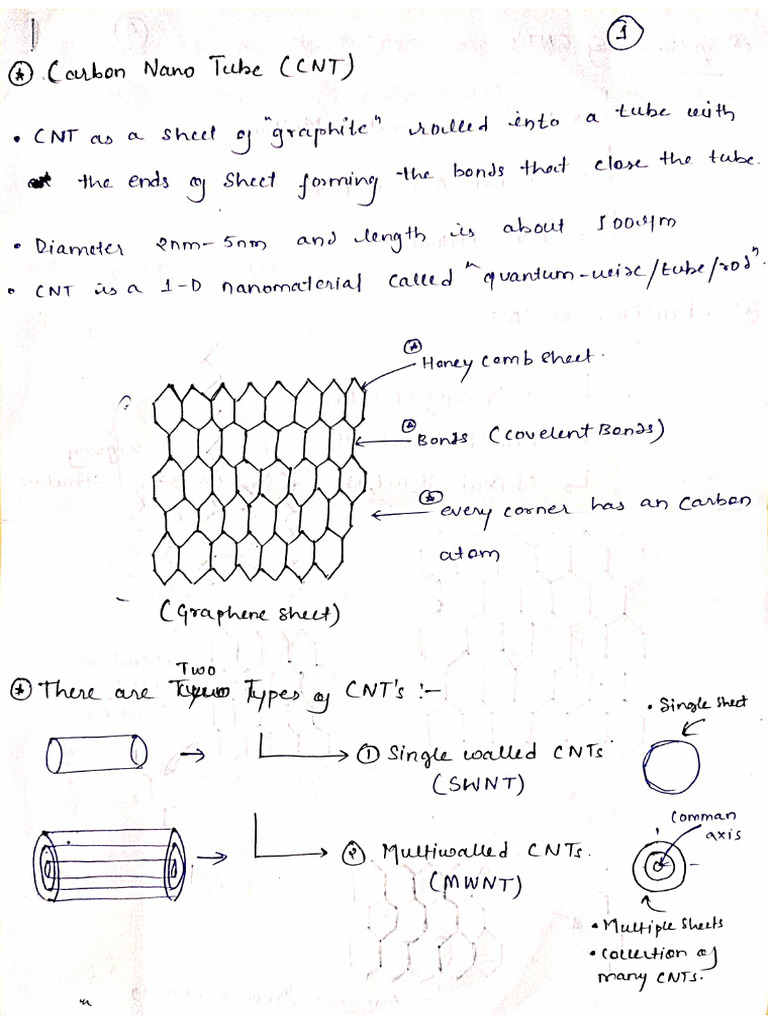 1
Carbon Nano Tube (CNT)
• CNT as a sheet of "graphite" rolled into a tube with
the ends of sheet forming the bonds that close the tube.
• Diameter 2nm-5nm and length is about
• CNT is a 1-D nanomaterial called "quantum-wire/tube/rod".
Honey comb sheet.
Bonds (covelent Bonds)
every corner has an carbon
atom
(Graphene sheet)
Two
There are Types of CNT's :-
• Single sheet
① Single walled CNTs
(SWNT)
Comman
axis
② Multiwalled CNTs.
(MWNT)
• Multiple sheets
• collection of
many CNTs.